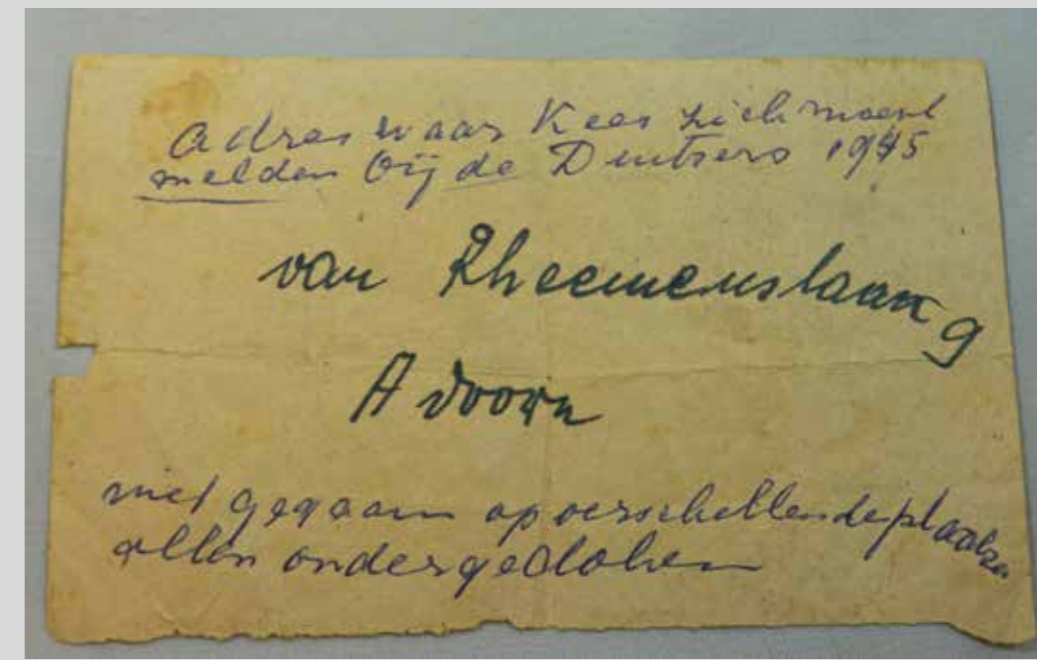 adres waar Kees zich moest
melden bij de Duitsers 1945
van Rheemenslaan 9
A'doorn
niet gegaan op verschellende plaatsen
allen ondergedoken